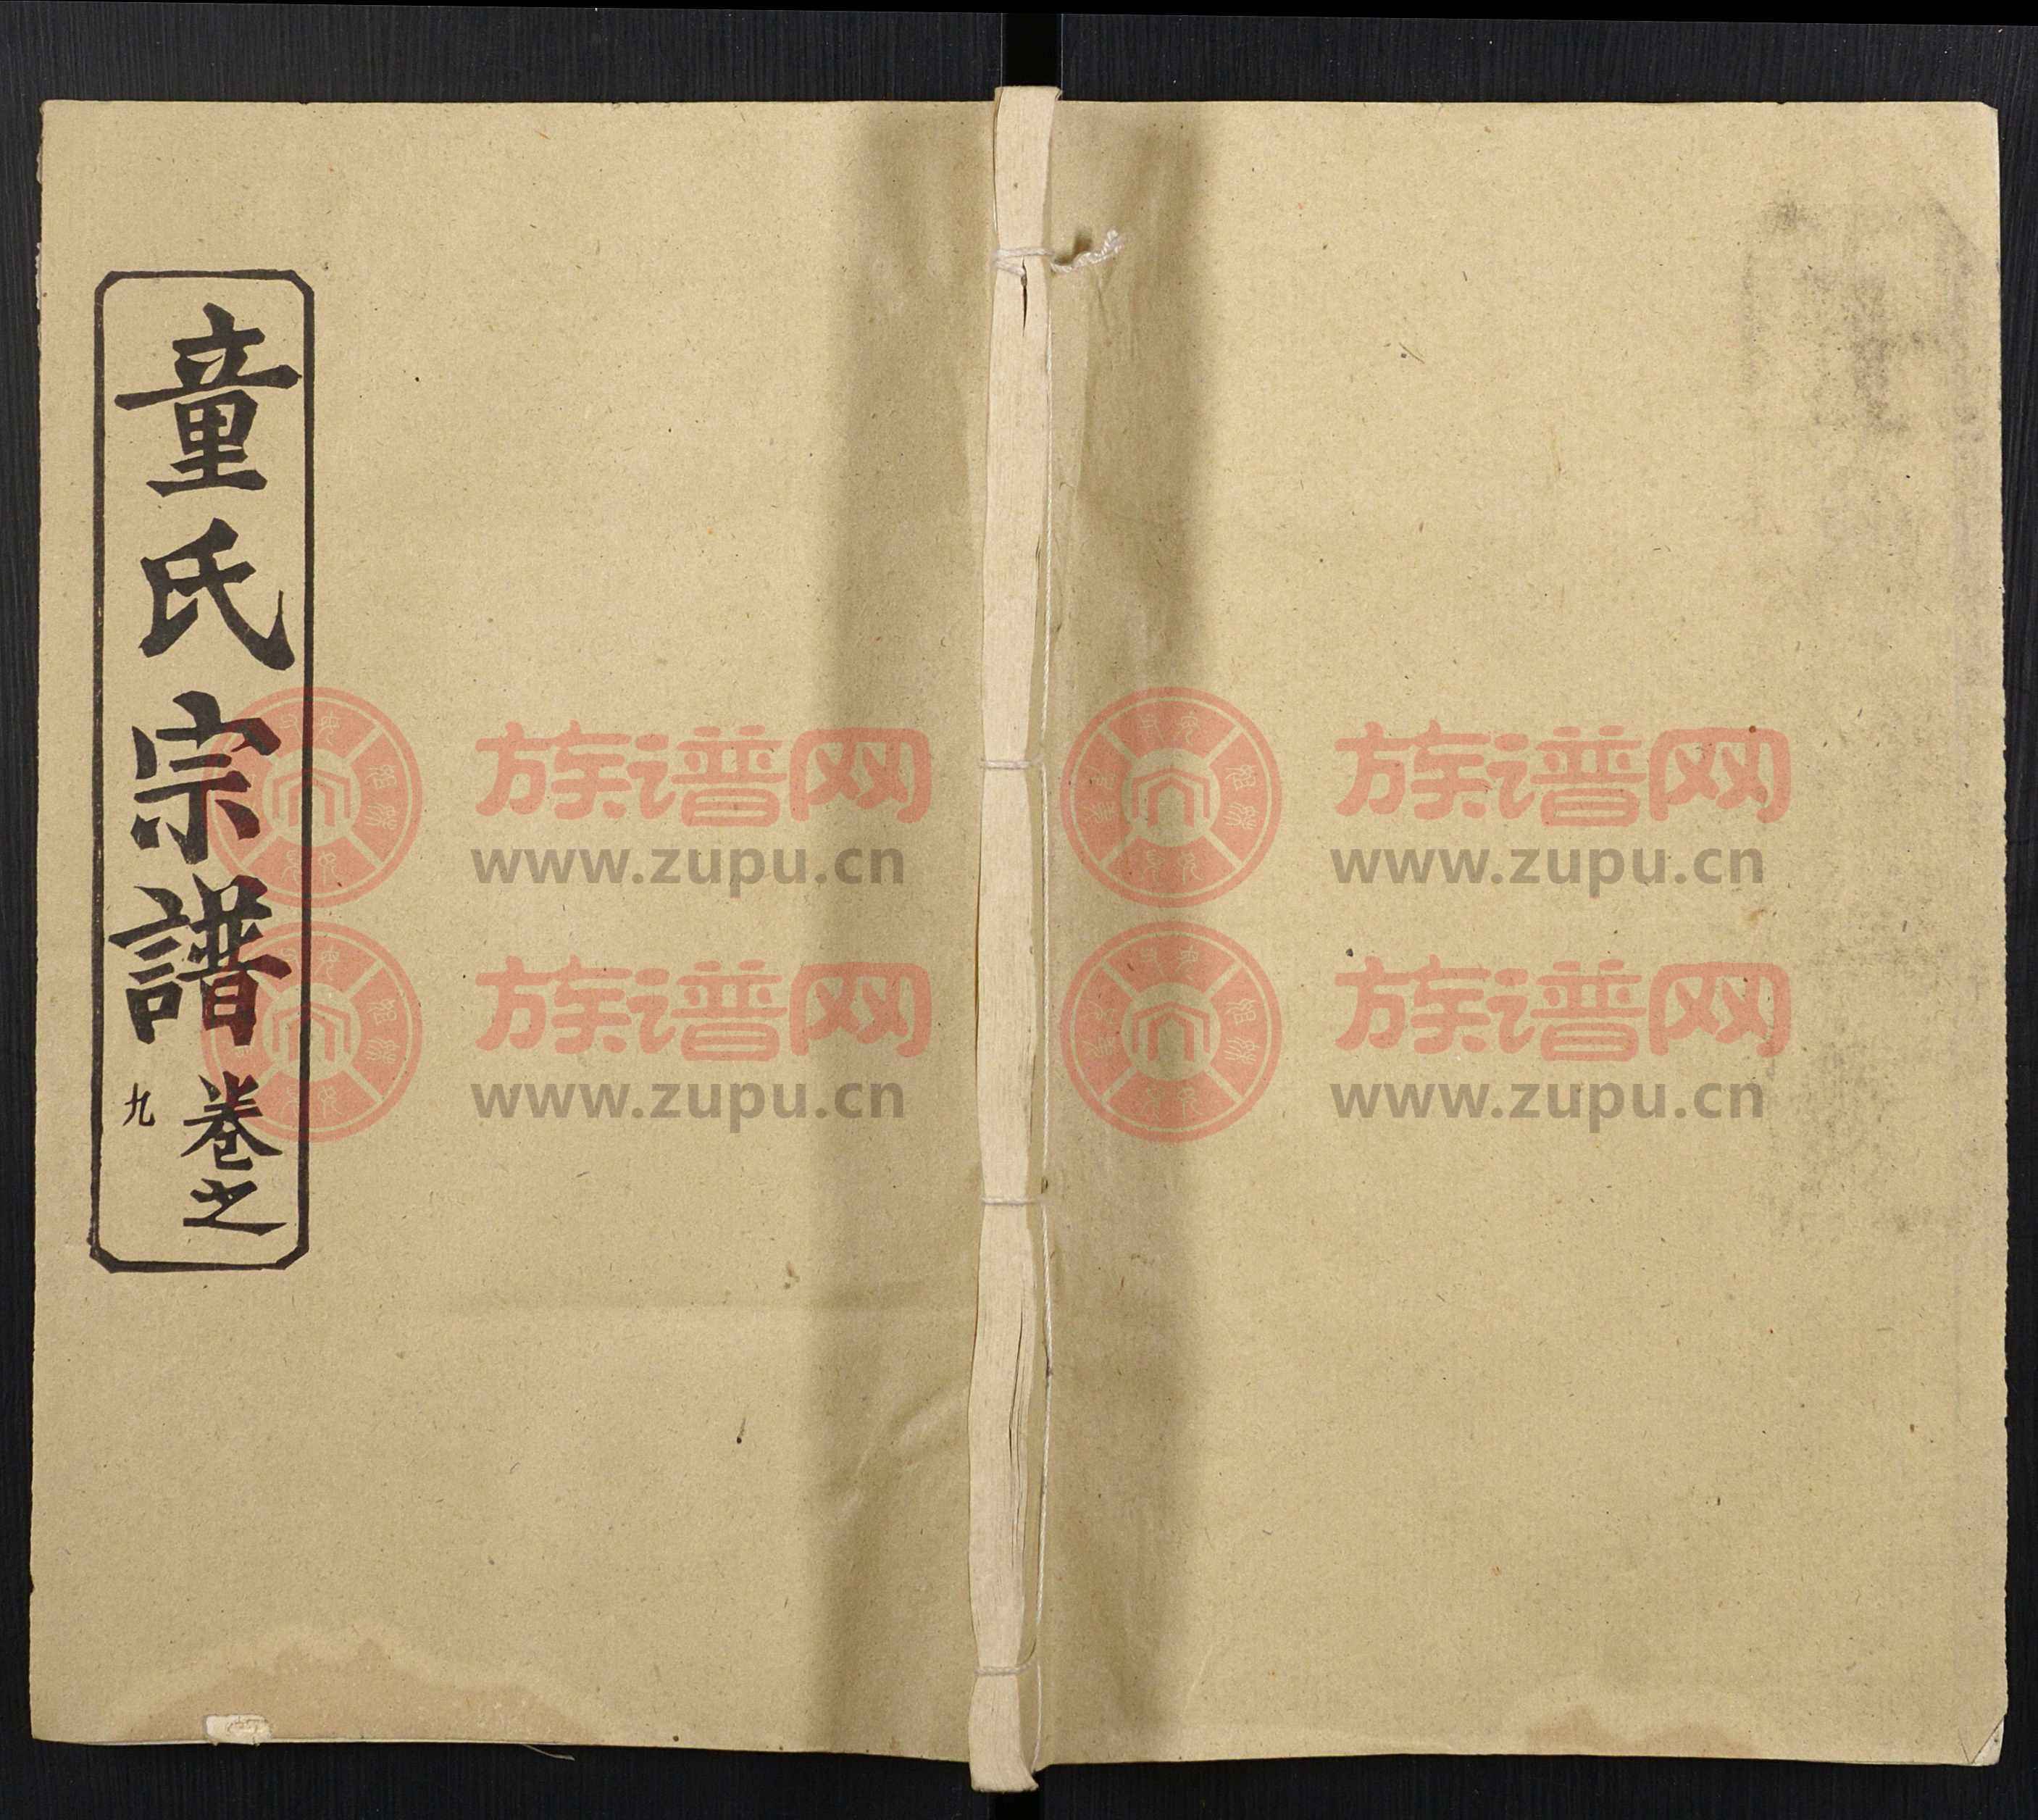 童氏宗譜
卷之
九
族谱网
www.zupu.cn
族谱网
www.zupu.cn
族谱网
www.zupu.cn
族谱网
www.zupu.cn